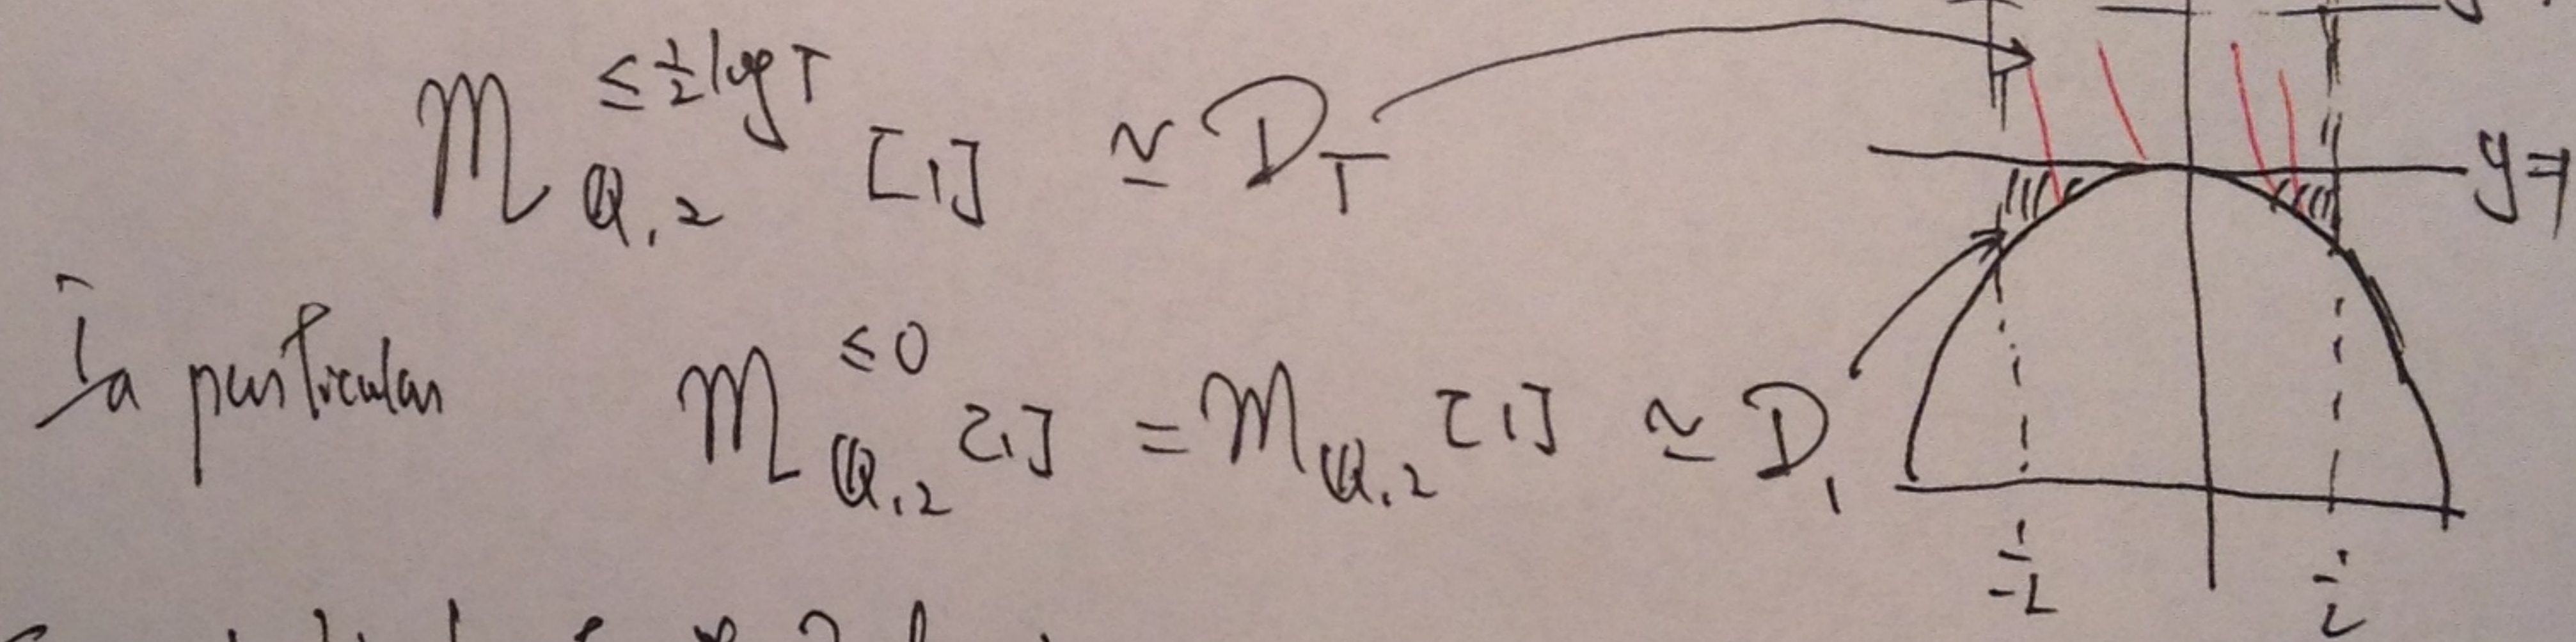 M_{Q,2}^{≤ 1/2 log T} [1] ≃ D_T
y=1
In particular M_{Q,2}^{≤0} [1] = M_{Q,2} [1] ≃ D_1
-1/2 1/2